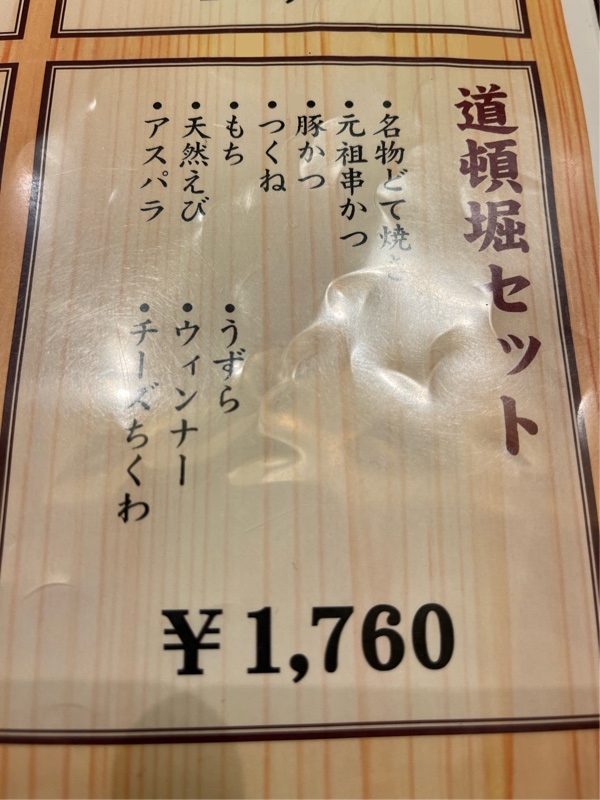 道頓堀セット
•名物どて焼き
•元祖串かつ
•豚かつ
•つくね
•もち
•天然えび
•アスパラ
•うずら
•ウィンナー
•チーズちくわ
¥1,760